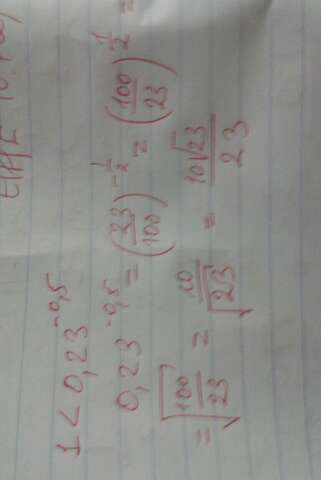 1 < 0,23^{-0,5}
0,23^{-0,5} = (\frac{23}{100})^{-\frac{1}{2}} = (\frac{100}{23})^{\frac{1}{2}} =
= \sqrt{\frac{100}{23}} = \frac{10}{\sqrt{23}} = \frac{10\sqrt{23}}{23}